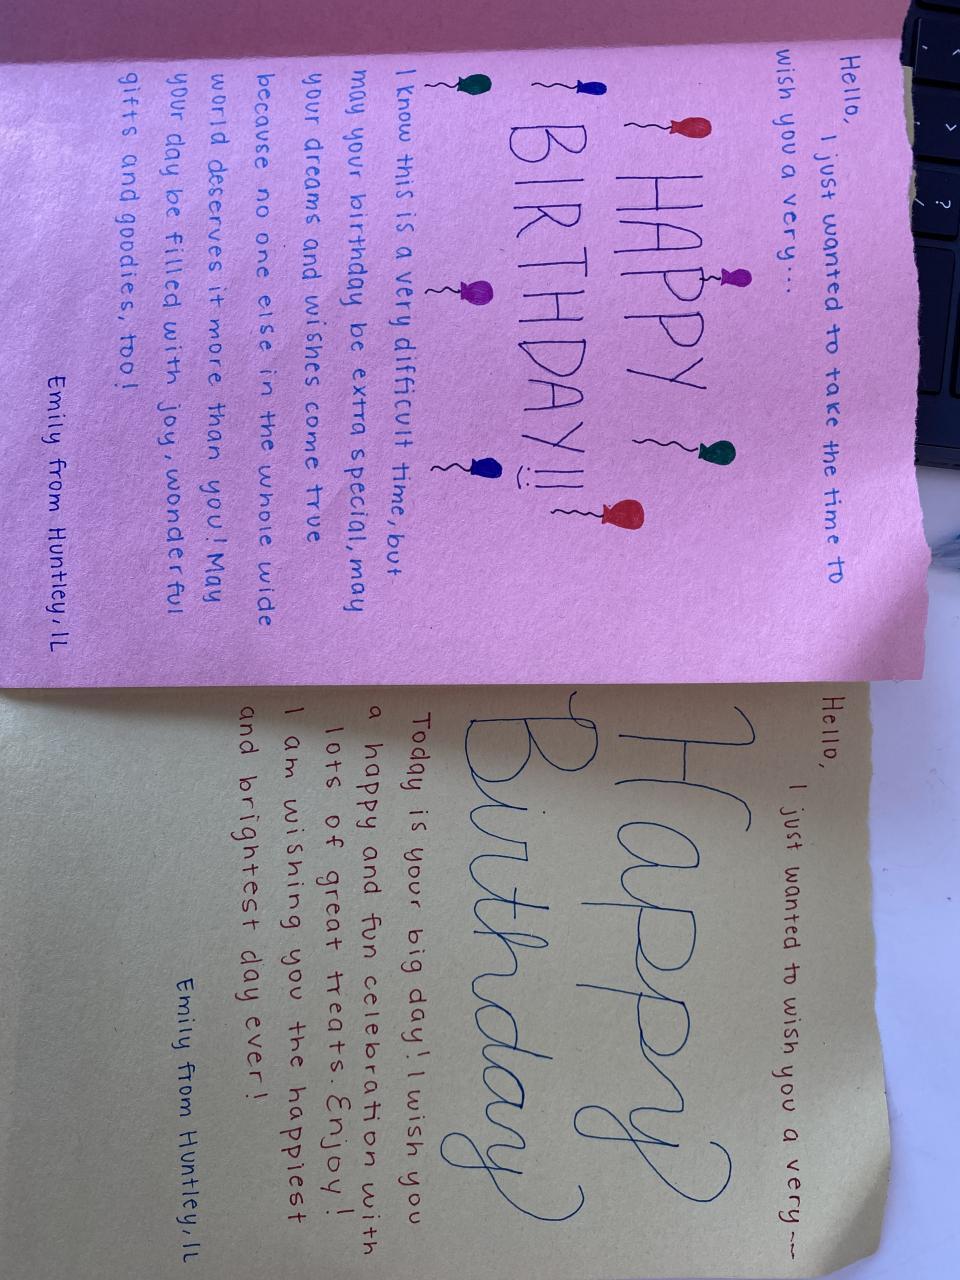 Hello,
I just wanted to take the time to
wish you a very...
HAPPY
BIRTHDAY!!
I know this is a very difficult time, but
may your birthday be extra special, may
your dreams and wishes come true
because no one else in the whole wide
world deserves it more than you! May
your day be filled with joy, wonderful
gifts and goodies, too!
Emily from Huntley, IL
Hello,
I just wanted to wish you a very~
Happy
Birthday
Today is your big day! I wish you
a happy and fun celebration with
lots of great treats. Enjoy!
I am wishing you the happiest
and brightest day ever!
Emily from Huntley, IL